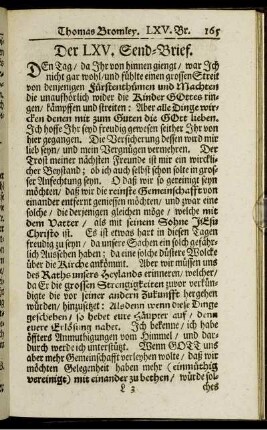 Thomas Bromley. LXV. Br. 165
Der LXV. Send-Brief.
DEn Tag / da Ihr von hinnen giengt / war Ich
nicht gar wohl / und fühlte einen grossen Streit
von denjenigen Fürstenthümen und Machten
die unaufhörlich wider die Kinder GOttes rin-
gen / kämpffen und streiten: Aber alle Dinge wir-
cken denen mit zum Guten die GOtt lieben.
Ich hoffe Ihr seyd freudig gewesen seither Ihr von
hier gegangen. Die Versicherung dessen wird mir
lieb seyn / und mein Vergnügen vermehren. Der
Trost meiner nächsten Freunde ist mir ein wirckli-
cher Beystand; ob ich auch selbst schon solte in gros-
ser Anfechtung seyn. O daß wir so gereinigt seyn
möchten / daß wir die reinste Gemeinschafft von
einander entfernt geniessen möchten / und zwar eine
solche / die derjenigen gleichen möge / welche mit
dem Vatter / als mit seinem Sohne JEsu
Christo ist. Es ist etwas hart in diesen Tagen
freudig zu seyn / da unsere Sachen ein solch gefähr-
lich Aussehen haben; da eine solche düstere Wolcke
über die Kirche ankömmt. Aber wir müssen uns
des Raths unsers Heylands erinneren / welcher /
da Er die grossen Strengigkeiten zuvor verkün-
digte die vor seiner andern Zukunfft hergehen
würden / hinzusetzt: Alsdenn wenn diese Dinge
geschehen / so hebet eure Häupter auf / denn
euere Erlösung nahet. Ich bekenne / ich habe
öffters Anmuthigungen vom Himmel / und dar-
durch werde ich unterstützt. Wenn GOTT uns
aber mehr Gemeinschafft verleyhen wolte / daß wir
möchten Gelegenheit haben mehr (einmüthig
vereinigt) mit einander zu bethen / würde sol-
L 3 ches